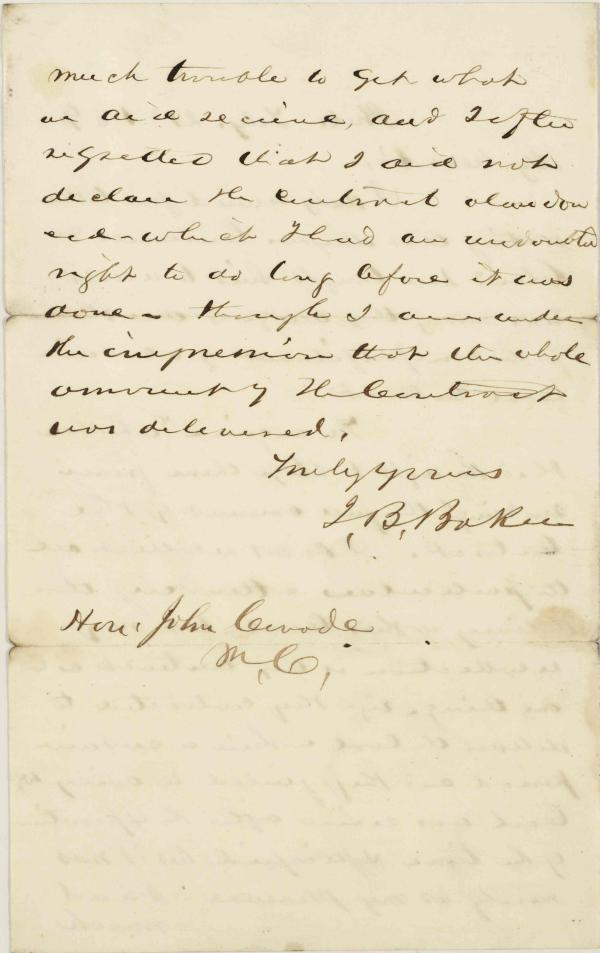 much trouble to get what
we did receive, and I often
regretted that I did not
declare the contract abandon
ed - which I had an undoubted
right to do long before it was
done - though I am under
the impression that the whole
amount of the Contract
was delivered.
Truly yours
J. B. Baker
Hon. John Covode
M. C.